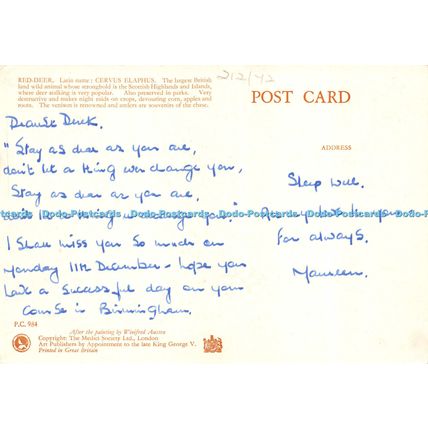 212/42
RED DEER. Latin name: CERVUS ELAPHUS. The largest British
land wild animal whose stronghold is the Scottish Highlands and Islands,
where deer stalking is very popular. Also preserved in parks. Very
destructive and makes night raids on crops, devouring corn, apples and
roots. The venison is renowned and antlers are souvenirs of the chase.
POST CARD
ADDRESS
Dearest Derek.
"Stay as dear as you are,
don't let a thing ever change you,
Stay as dear as you are,
Dodo-Postcards Dodo-Postcards Dodo-Postcards Dodo-Postcards
I shall miss you so much on
Monday 11th December - hope you
have a successful day on your
Course in Birmingham.
Sleep well.
for always.
Maureen.
P.C. 984
After the painting by Winifred Austen
Copyright: The Medici Society Ltd., London
Art Publishers by Appointment to the late King George V.
Printed in Great Britain